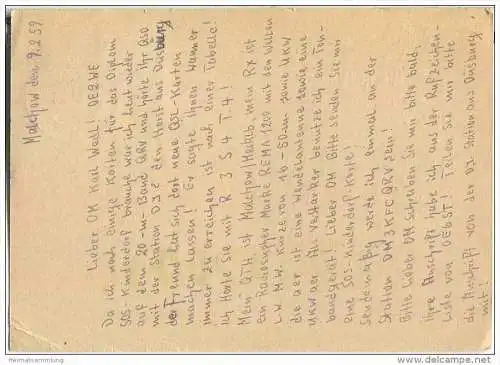 Malchow den 9.2.59
Lieber OM Karl Waal! OE2WE
Da ich noch einige Karten für das Diplom
SOS-Kinderdorf brauche war ich heut wieder
auf dem 20-m-Band QRV und hörte Ihr QSO
mit der Station DJ2 den Horst aus Duisburg
der Freund hat sich dort neue QSL-Karten
machen Lassen! Er sagte Ihnen Wanner
immer zu erreichen ist nach einer Tabelle!
Ich Hörte Sie mit R 3 S 4 T.4!
Mein QTH ist Malchow/Mecklb. mein Rx ist
Ein Radiosuper Marke REMA 1200 mit den Wellen
LW. MW. KW. von 16-50m sowie UKW
die aer ist eine Wendelantenne sowie eine
UKW aer Als Verstärker benutze ich ein Ton-
bandgerät! Lieber OM Bitte senden Sie mir
eine SOS-Kinderdorf-Karte!
Sendemäßig werde ich einmal an der
Station DM 3KFC QRV sein!
Bitte Lieber OM schreiben Sie mir bitte bald.
Ihre Anschrift habe ich aus der Rufzeichen-
Liste von OEBST! Teilen Sie mir bitte
die Anschrift von der DJ Station aus Duisburg
mit!
Heimatsammlung
www.delcampe.net